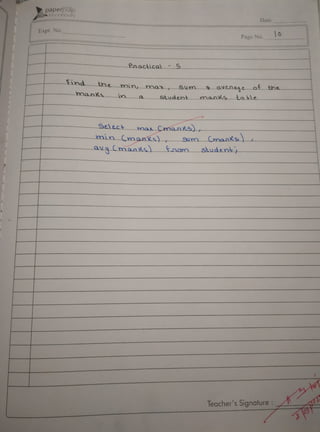 paper
Date
Expt. No.
Page No. 10
Practical - 5
Find the min, max, sum & average of the
marks in a student marks table
Select max (marks),
min (marks), sum (marks),
avg (marks) from student;
Teacher's Signature :